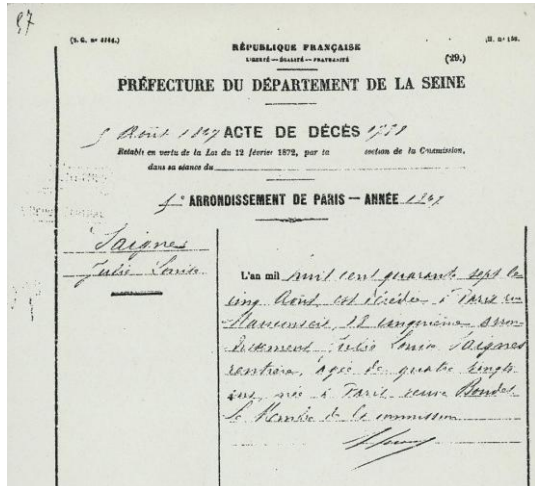 97
(S. G. nº 4244.)
RÉPUBLIQUE FRANÇAISE
LIBERTÉ — ÉGALITÉ — FRATERNITÉ
(29.)
PRÉFECTURE DU DÉPARTEMENT DE LA SEINE
5 Août 1847 ACTE DE DÉCÈS
Rétabli en vertu de la Loi du 12 février 1872, par la section de la Commission,
dans sa séance du
5e ARRONDISSEMENT DE PARIS — ANNÉE 1847
Saignes
Julie Louise
L'an mil huit cent quarante sept le
cinq Août est décédée à Paris rue
Mauconseil, 18 cinquième arron
dissement Julie Louise Saignes
rentière, âgée de quatre vingts
ans née à Paris veuve Boudet
Le Membre de la commission